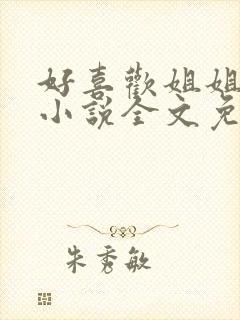 好喜歡姐姐
小說全文免
朱秀敏